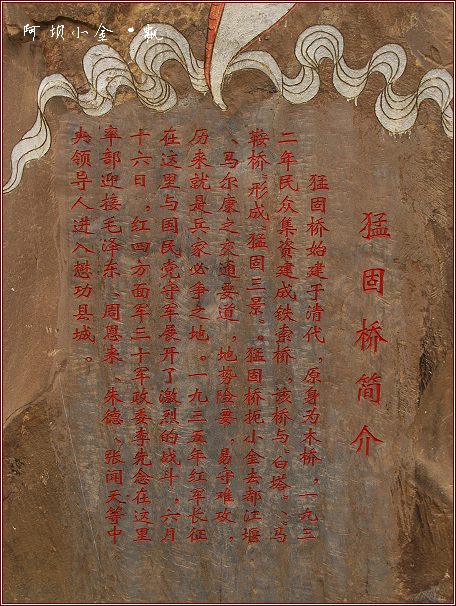 阿坝小金·
猛固桥简介
猛固桥始建于清代，原身为木桥，一九三
二年民众集资建成铁索桥，该桥与“白塔”、“马
鞍桥”形成“猛固三景”。猛固桥扼小金去都江堰
、马尔康之交通要道，地势险要，易守难攻，
历来就是兵家必争之地。一九三五年红军长征
在这里与国民党守军展开了激烈的战斗，六月
十六日，红四方面军三十军政委李先念在这里
率部迎接毛泽东、周恩来、朱德、张闻天等中
央领导人进入懋功县城。